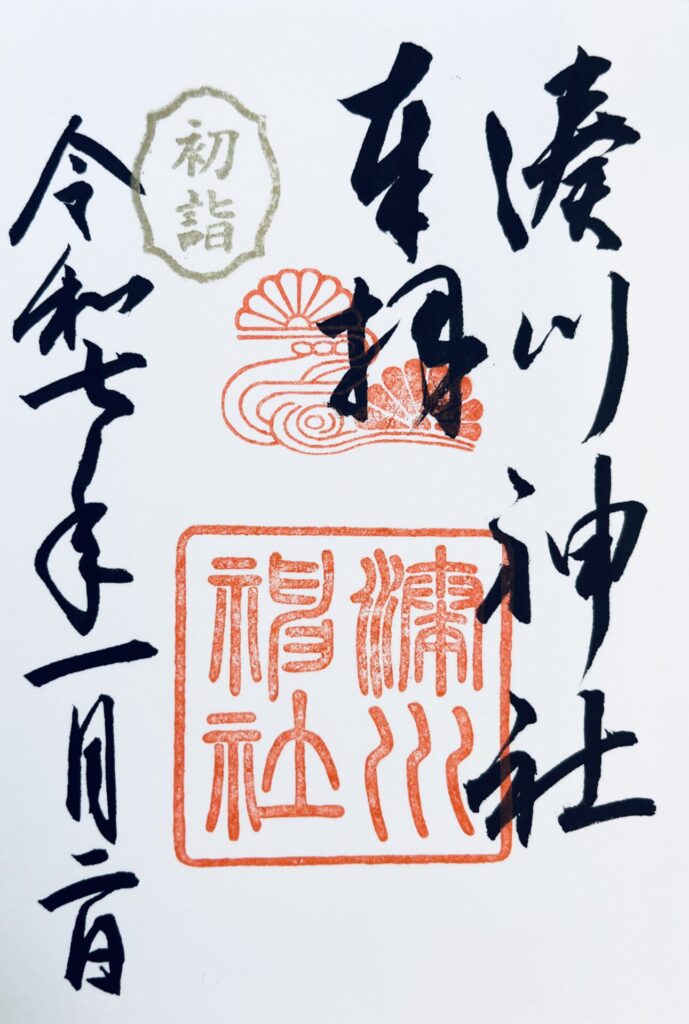 湊川神社
奉拝
初詣
令和七年一月二日
湊川神社